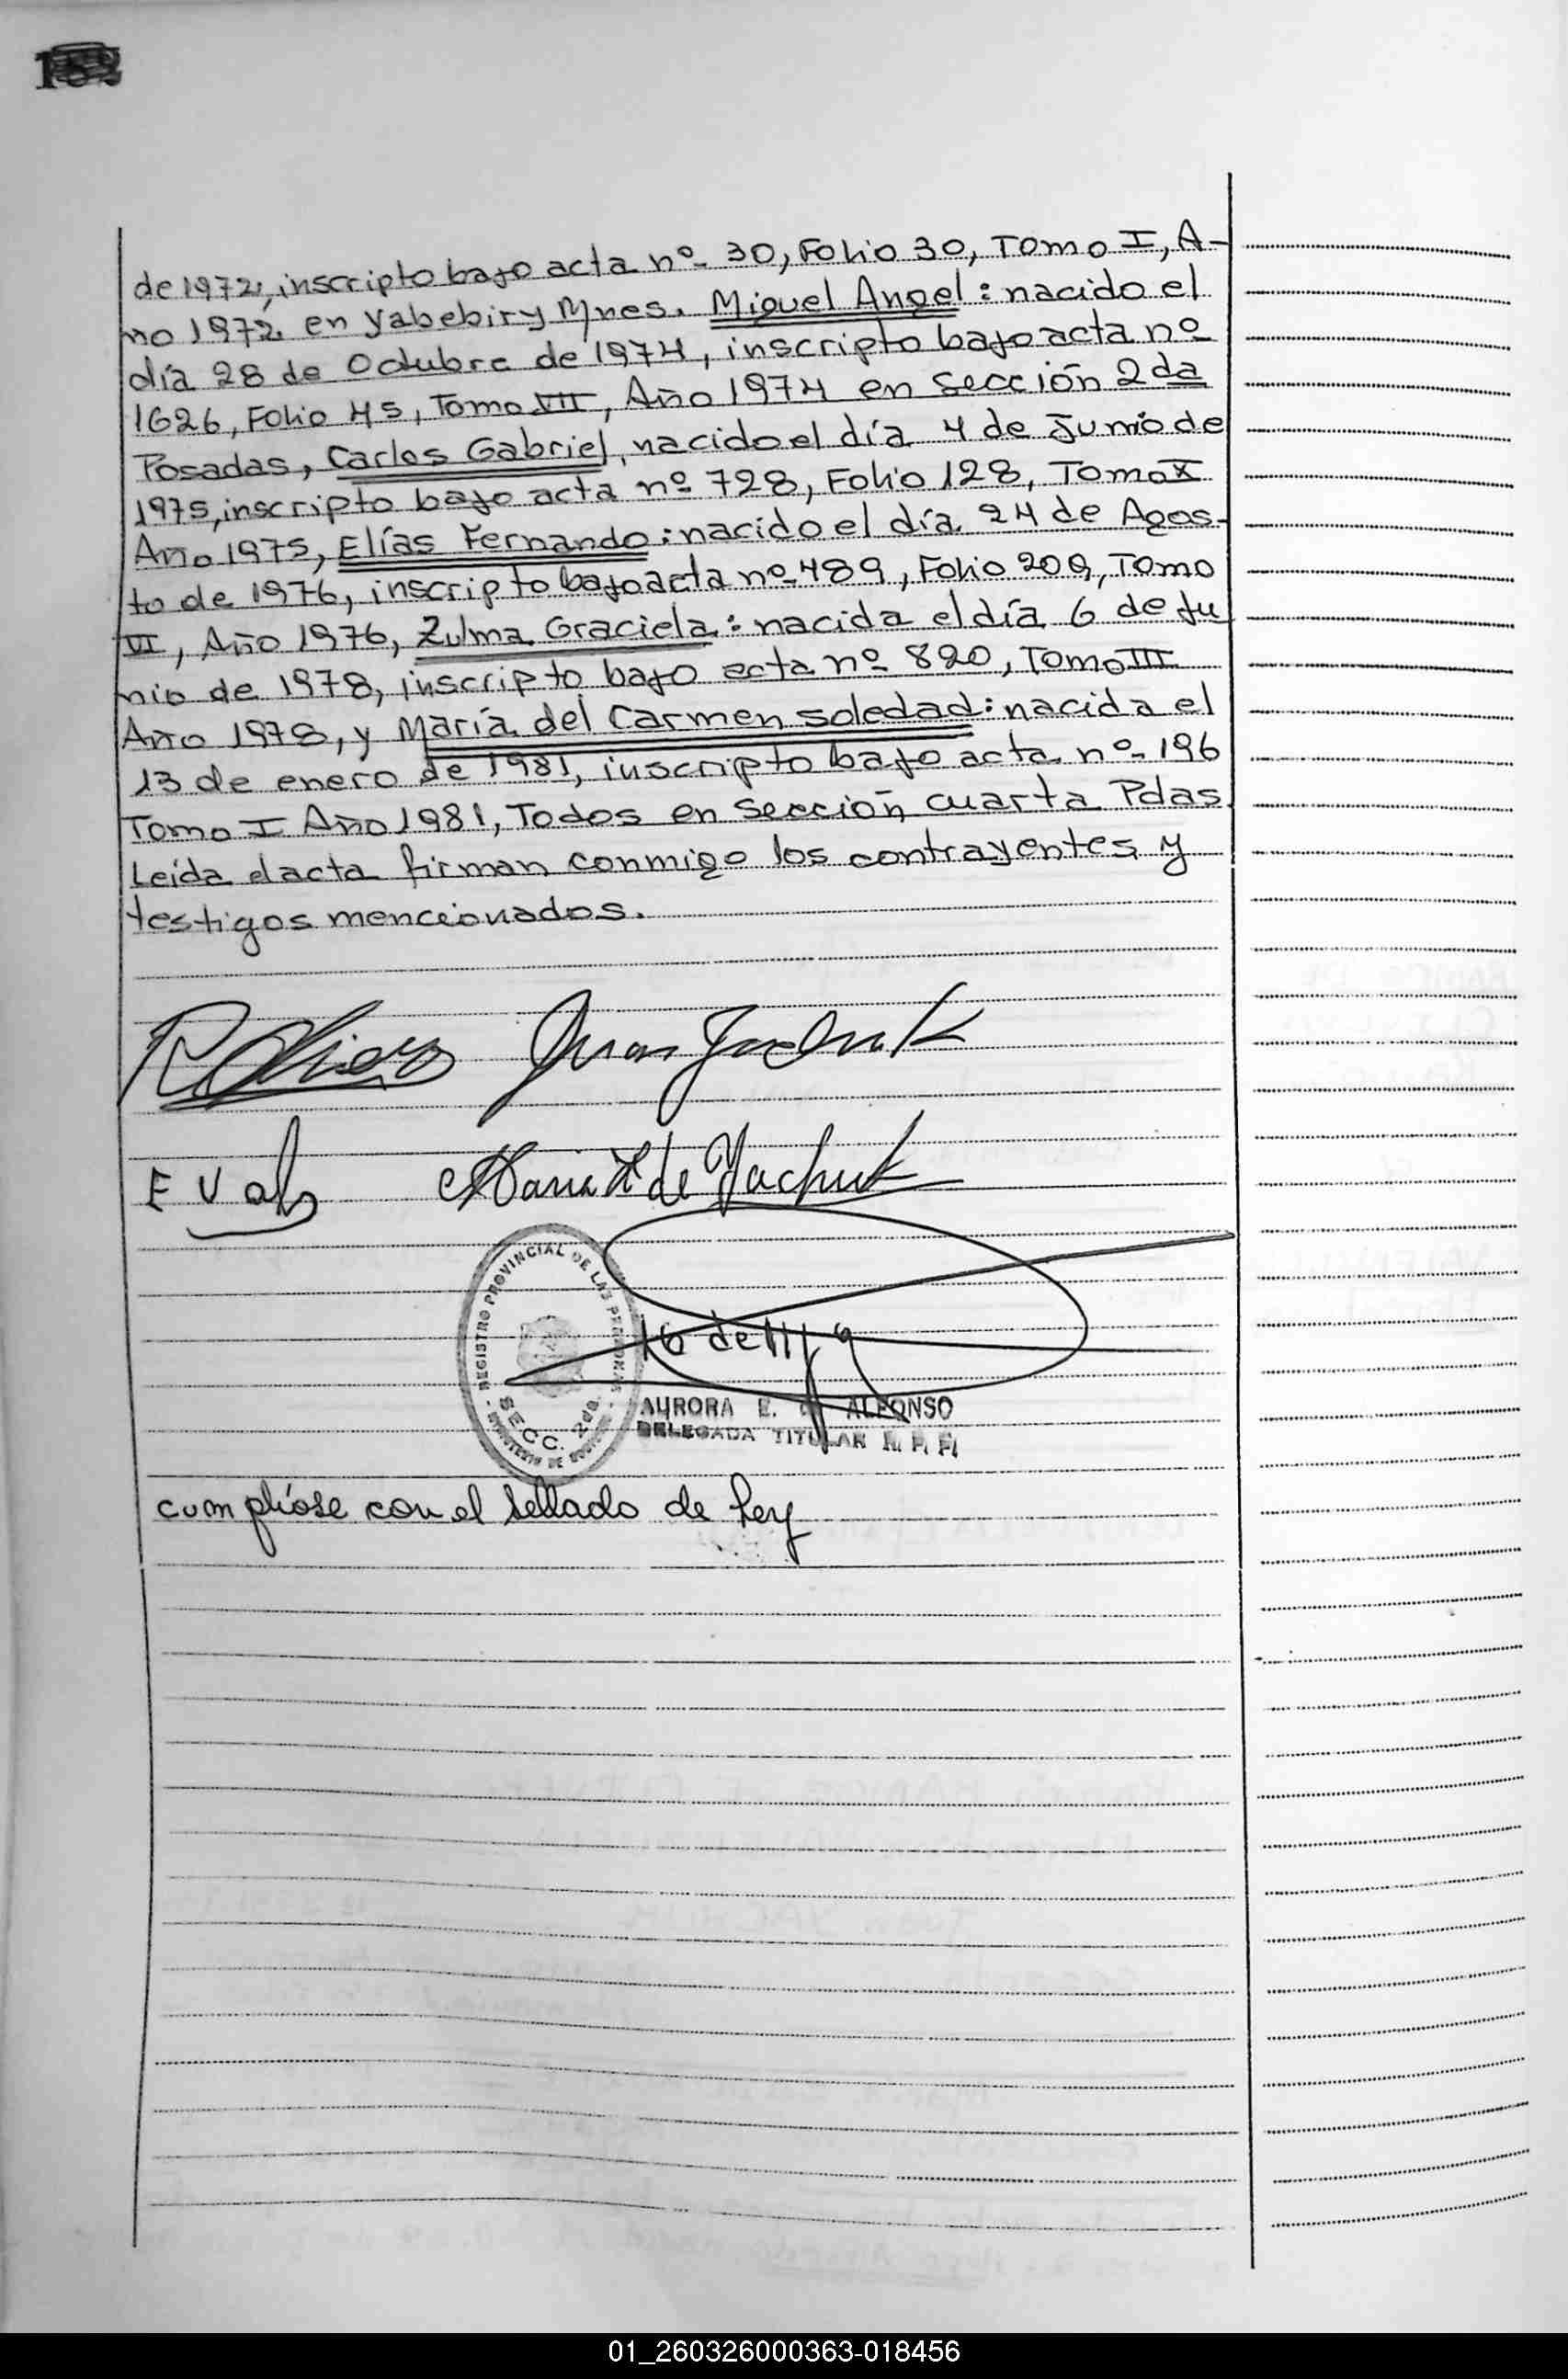 de 1972, inscripto bajo acta nº 30, Folio 30, Tomo I, A-
ño 1972 en Yabebiry Mnes. Miguel Angel: nacido el
día 28 de Octubre de 1974, inscripto bajo acta nº
1626, Folio 45, Tomo VII, Año 1974 en Sección 2da
Posadas, Carlos Gabriel, nacido el día 4 de Junio de
1975, inscripto bajo acta nº 728, Folio 128, Tomo X
Año 1975, Elías Fernando: nacido el día 24 de Agos-
to de 1976, inscripto bajo acta nº 489, Folio 209, Tomo
VI, Año 1976, Zulma Graciela: nacida el día 6 de Ju
nio de 1978, inscripto bajo acta nº 820, Tomo III
Año 1978, y María del Carmen Soledad: nacida el
13 de enero de 1981, inscripto bajo acta nº 196
Tomo I Año 1981, Todos en Sección cuarta Pdas.
Leída el acta firman conmigo los contrayentes y
testigos mencionados.
Juan Jachuk
E Val
Maria H de Yachuk
REGISTRO PROVINCIAL DE LAS PERSONAS
SECC. 2da.
MINISTERIO DE
AURORA E. ALFONSO
DELEGADA TITULAR R. P. P.
cumplióse con el sellado de ley
01_260326000363-018456